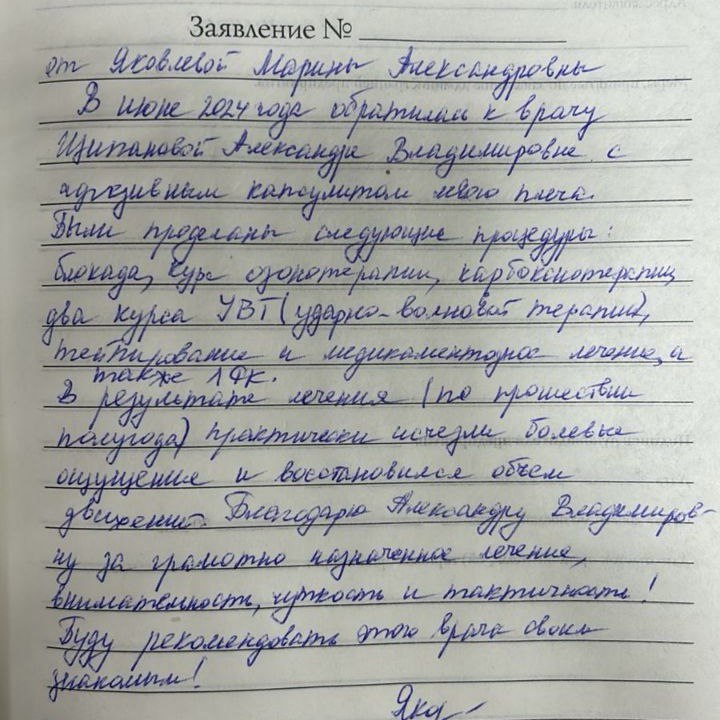 Заявление №
от Яковлевой Марины Александровны
В июне 2024 года обратилась к врачу
Щипановой Александре Владимировне с
адгезивным капсулитом левого плеча.
Были проделаны следующие процедуры:
блокада, курс озонотерапии, карбокситерапии,
два курса УВТ (ударно-волновой терапии),
тейпирование и медикаментозное лечение, а
также ЛФК.
В результате лечения (по прошествии
полугода) практически исчезли болевые
ощущения и восстановился объем
движений. Благодарю Александру Владимиров-
ну за грамотно назначенное лечение,
внимательность, чуткость и тактичность!
Буду рекомендовать этого врача своим
знакомым!